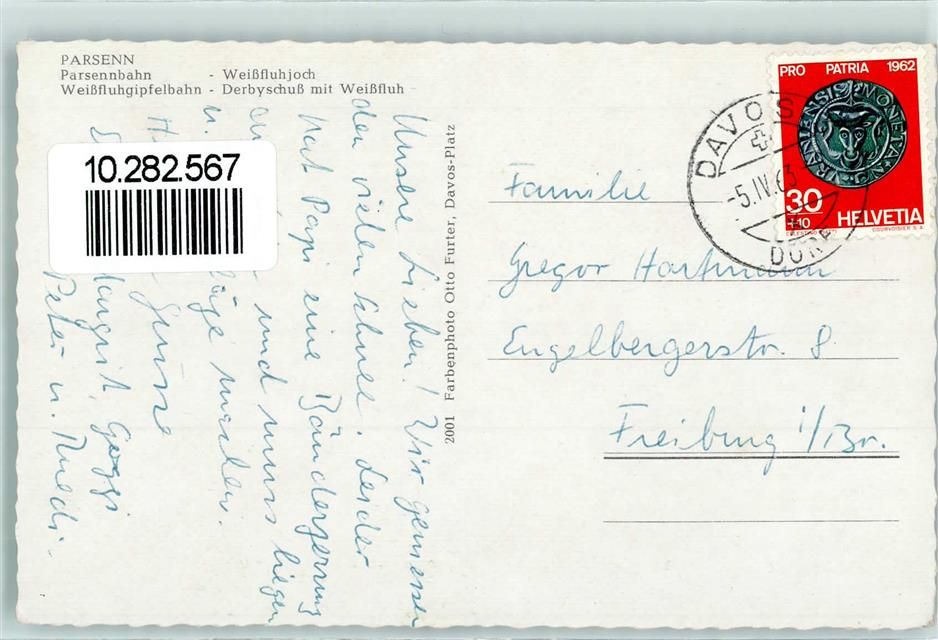 PARSENN
Parsennbahn - Weißfluhjoch
Weißfluhgipfelbahn - Derbyschuß mit Weißfluh
10.282.567
Unsere Lieben! Wir geniessen
den vielen Schnee. Leider
hat Papi eine Bänderzerrung
und muss liegen
u. machen.
Grüsse
Georgi
Peter u. Ruedi.
2001 Farbenphoto Otto Furter, Davos-Platz
PRO PATRIA 1962
URANIENSIS MONETA
30
+10
HELVETIA
COURVOISIER S.A.
DAVOS
-5.IV.63
DORF
Familie
Gregor Hartmann
Engelbergerstr. 8
Freiburg i/Br.